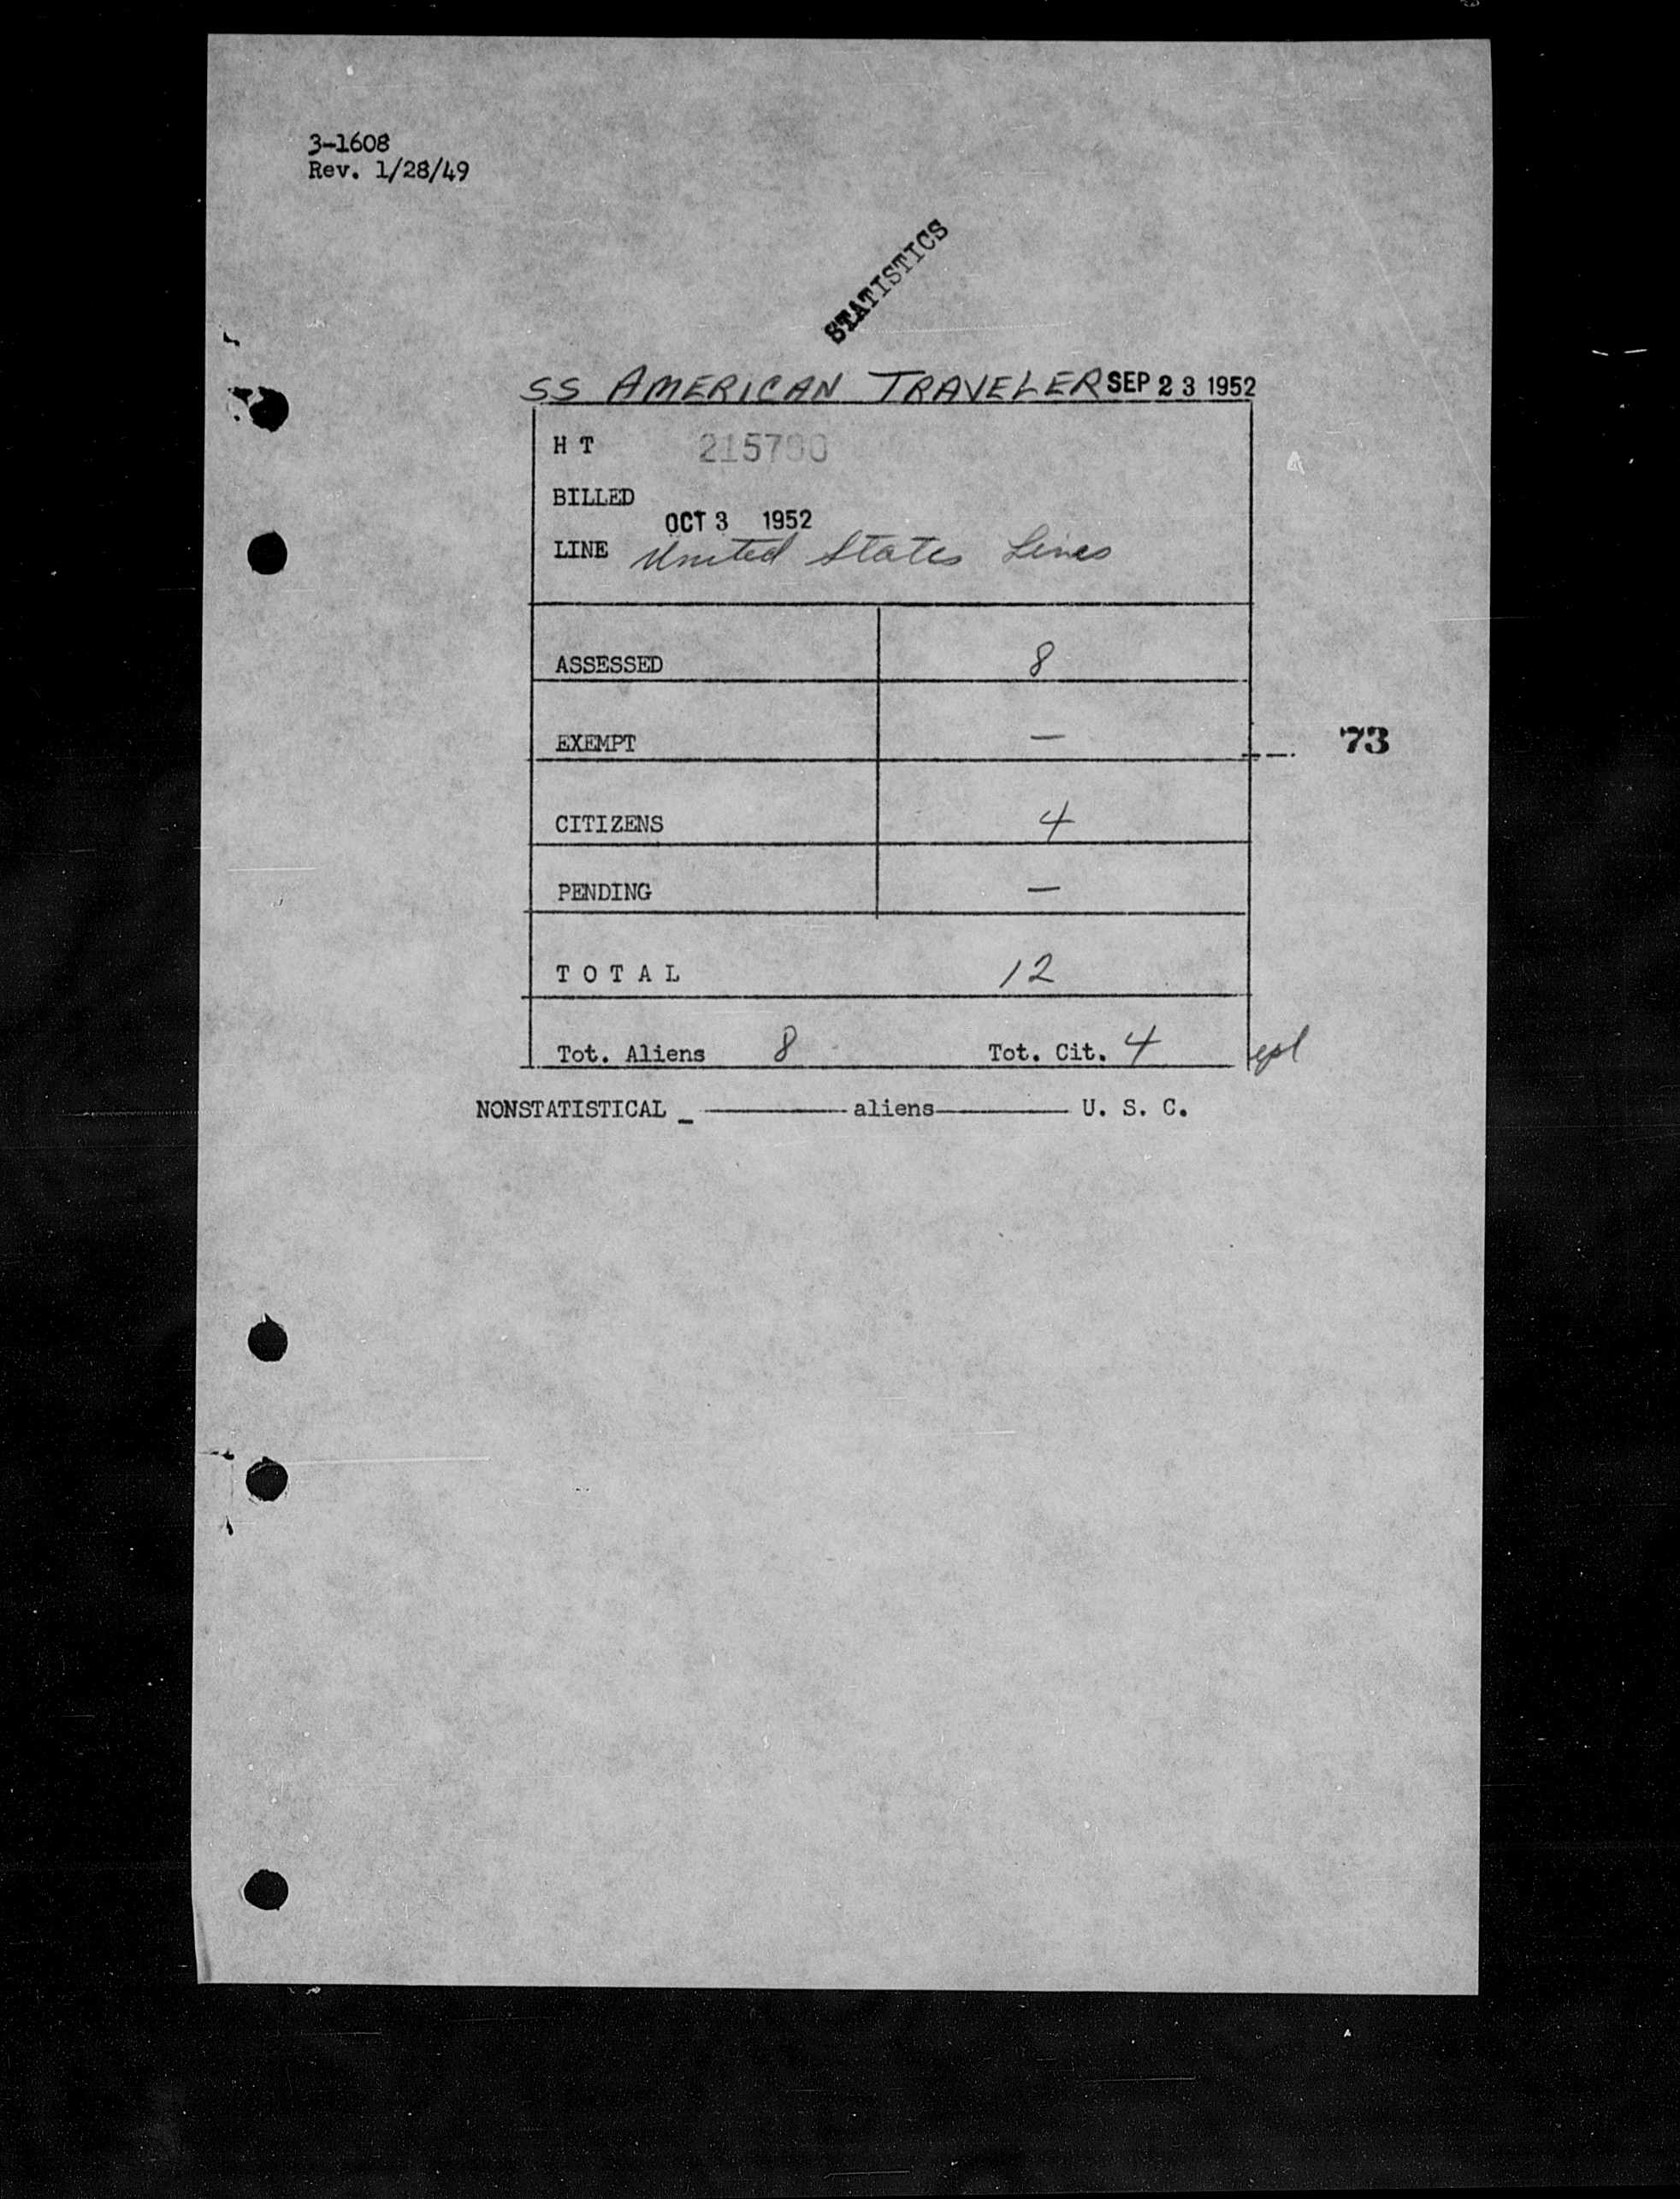 3-1608
Rev. 1/28/49
STATISTICS
SS AMERICAN TRAVELER SEP 23 1952
H T 215790
BILLED
OCT 3 1952
LINE United States Lines
ASSESSED 8
EXEMPT —
73
CITIZENS 4
PENDING —
T O T A L 12
Tot. Aliens 8 Tot. Cit. 4
NONSTATISTICAL _ ———— aliens ———— U. S. C.